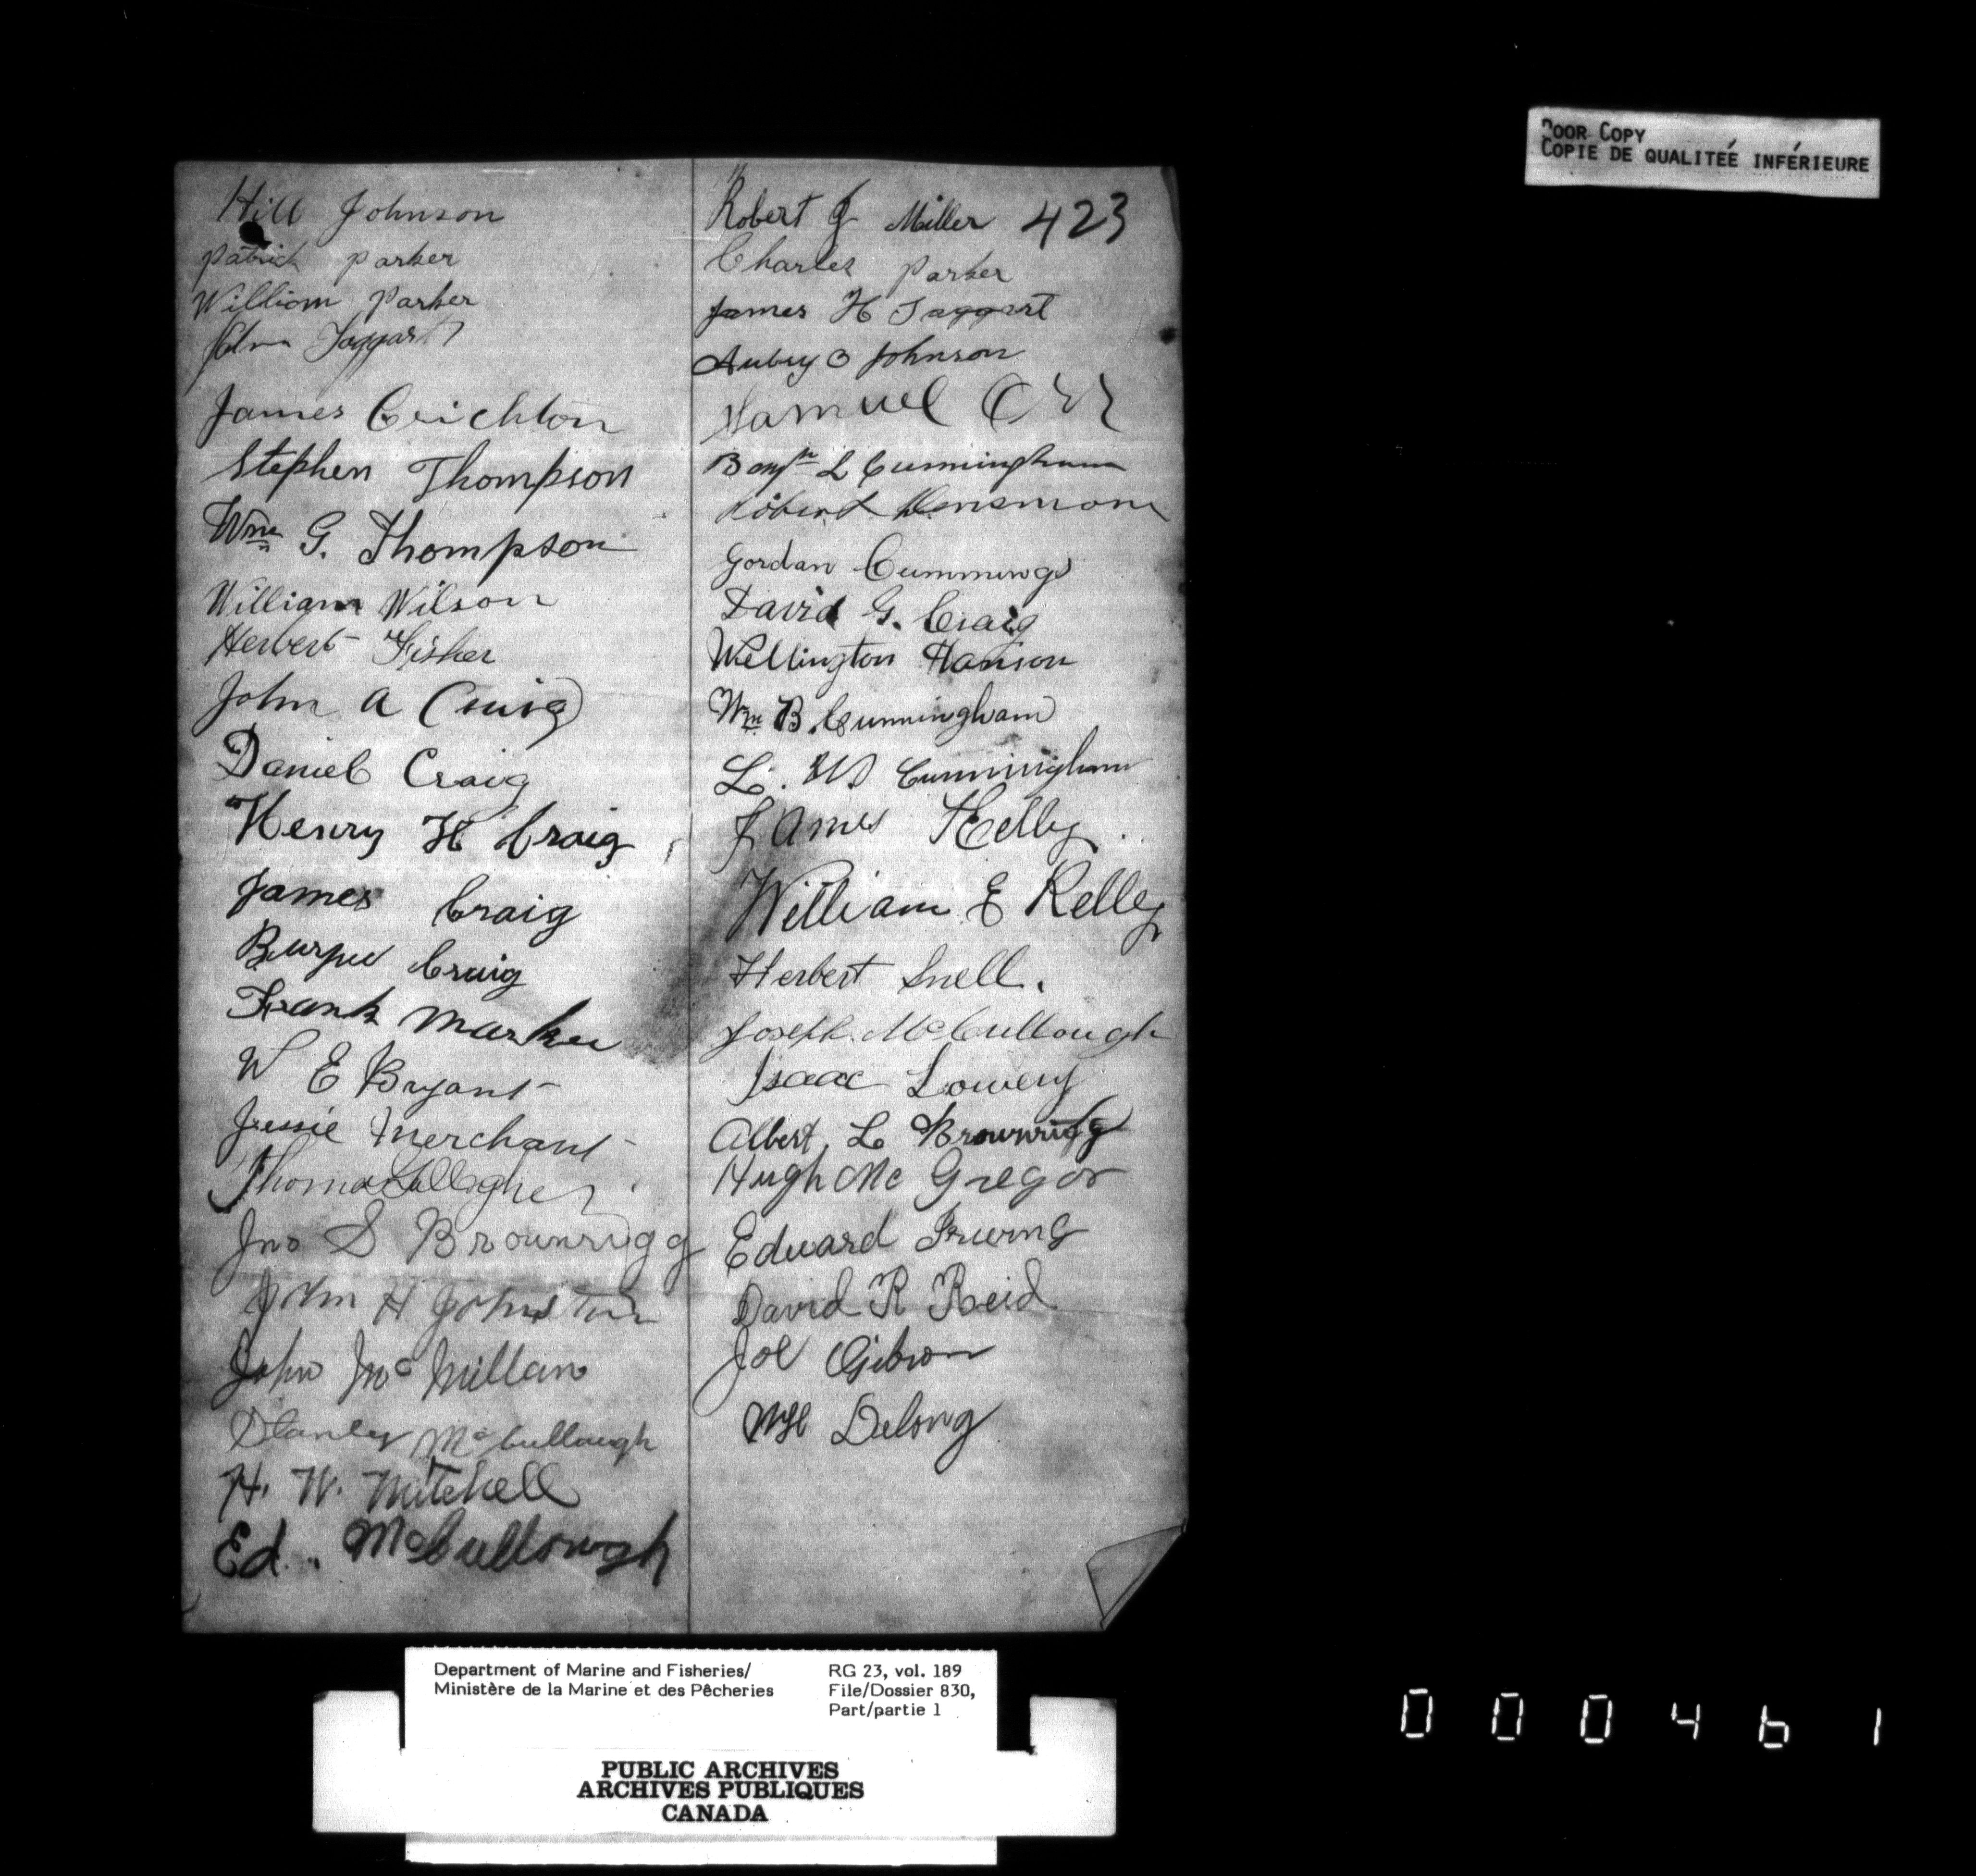 Hill Johnson
Patrick Parker
William Parker
John Taggart
James Crichton
Stephen Thompson
Wm G. Thompson
William Wilson
Herbert Fisher
John A Craig
Daniel Craig
Henry H Craig
James Craig
Burpee Craig
Frank Marker
W E Bryant
Jessie Merchant
Thomas Gallagher
Jno S Brownrigg
John H Johnston
John McMillan
Stanley McCullough
H. W. Mitchell
Ed. McCullough
Robert J Miller 423
Charles Parker
James H Taggart
Aubry O Johnson
Samuel Orr
Benjn L Cunningham
Robert
Gordan Cummings
David G. Craig
Wellington Hanson
Wm B. Cunningham
L. W Cunningham
James Kelley
William E Kelley
Herbert Snell.
Joseph McCullough
Isaac Lowery
Albert L Brownrigg
Hugh Mc Gregor
Edward Irving
David R Reid
Joe Gibson
WH Delong
POOR COPY
COPIE DE QUALITEÉ INFÉRIEURE
Department of Marine and Fisheries/
Ministère de la Marine et des Pêcheries
RG 23, vol. 189
File/Dossier 830,
Part/partie 1
PUBLIC ARCHIVES
ARCHIVES PUBLIQUES
CANADA
000461